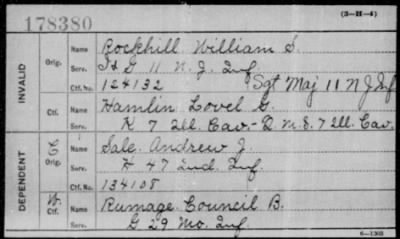 178380
(3-H-4)
INVALID
Orig.
Name Rockhill William S.
Serv. H G 11 N. J. Inf
Ctf. No. 124132 Sgt Maj 11 N J Inf
Ctf.
Name Hamlin Lovel G.
Serv. K 7 Ill. Cav.- Q M S. 7 Ill. Cav.
DEPENDENT
C
Orig.
Name Sale Andrew J.
Serv. H 47 Ind. Inf.
Ctf. No. 134108
W.
Ctf.
Name Rumage Council B.
Serv. G 29 Mo. Inf